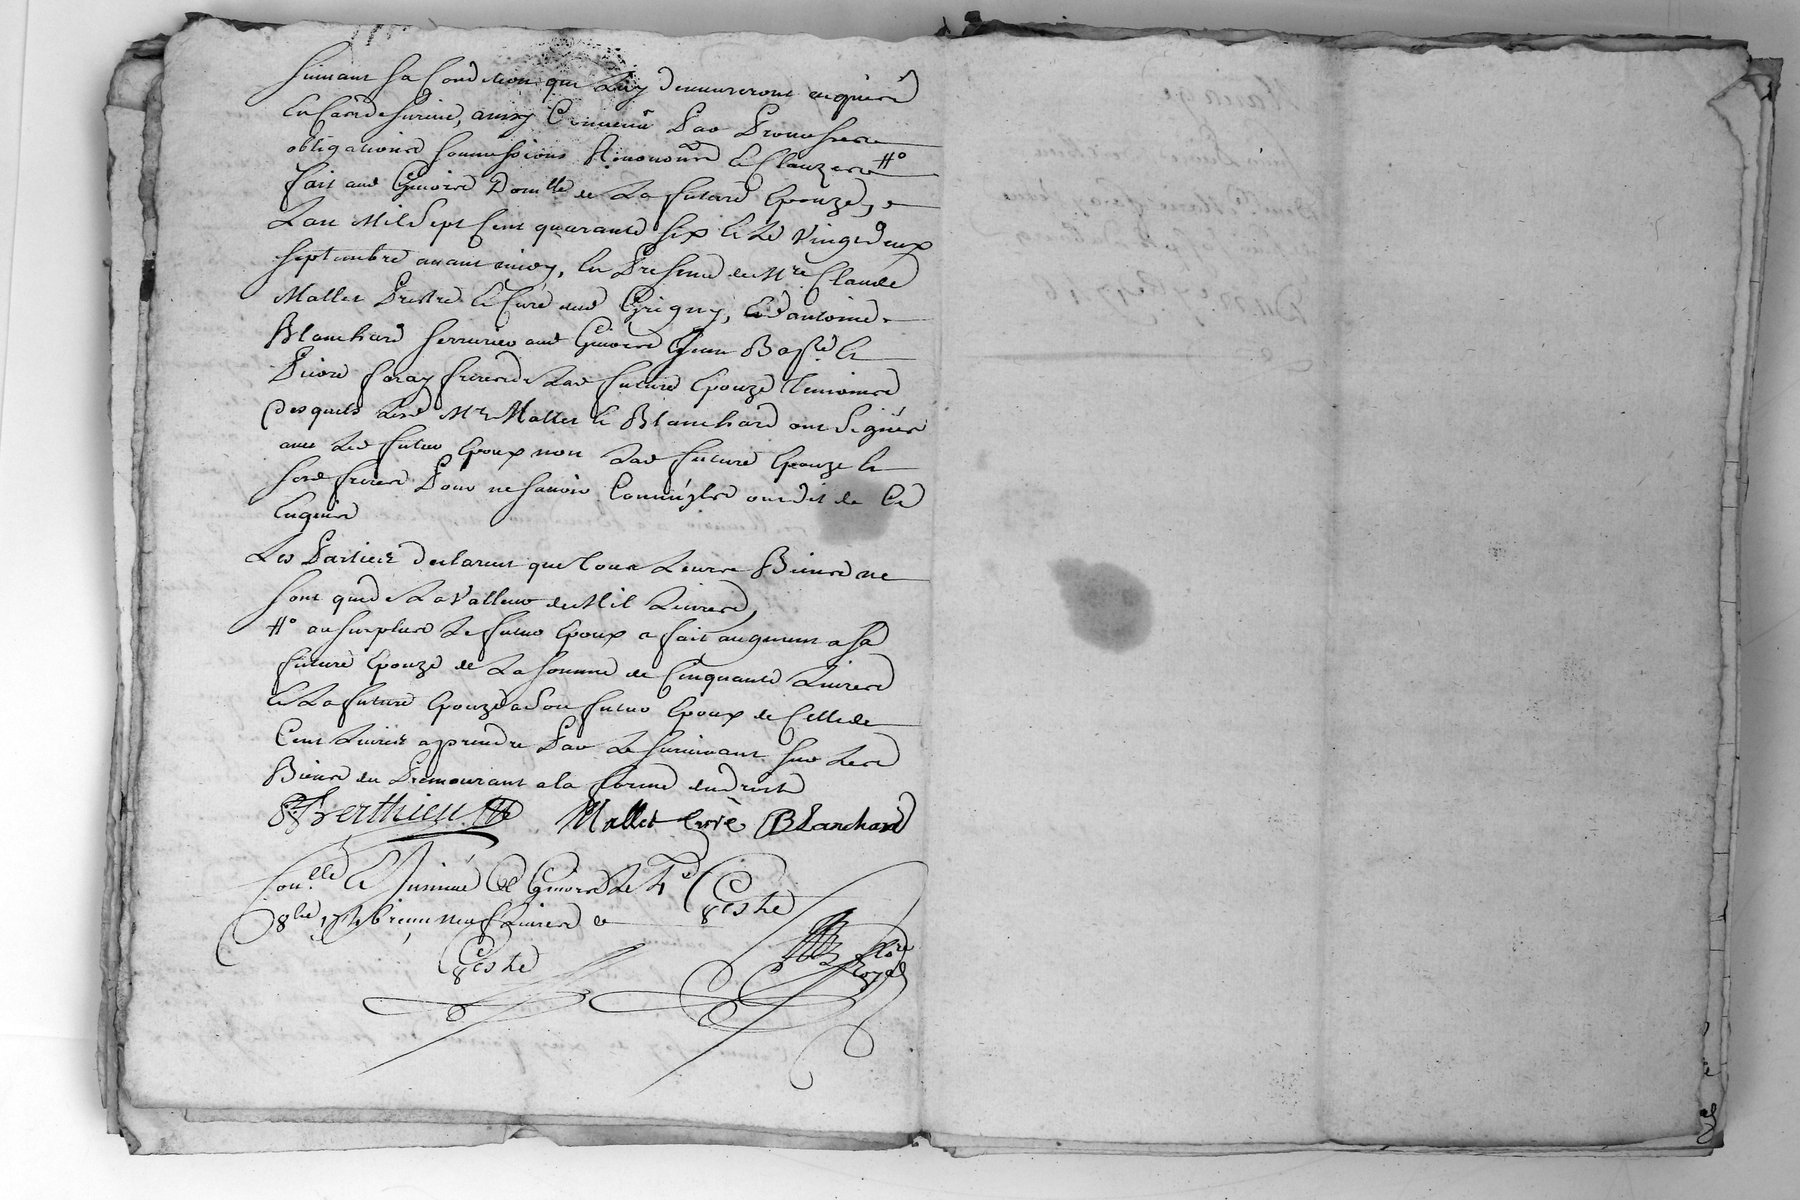 suivant sa Condition qui Luy demeureront acquise
En Cas de survie, ainsy Convenu Par Promesses
obligations soumissions Renoncõns & Clauzes #o
fait aud Givors Domlle de La future Epouze,
Lan Mil Sept Cent quarante six & Le Vingt deux
septembre avant midy, En Presence de Mre Claude
Mallet Prestre & Curé aud Grigny, & d'antoine
Blanchard serrurier aud Givors Jean Baste &
Pierre foray freres de Lad future Epouze temoins
Desquels Lesd Mre Mallet & Blanchard ont Signés
avec Led futur Epoux non Lad future Epouze &
sesd freres Pour ne savoir Comm'ils ont dit de Ce
Enquis
Les Parties declarent que tous Leurs Biens ne
sont que de La Valleur de Mil Livres,
#o au surplus Le futur Epoux a fait augment a sa
future Epouze de La somme de Cinquante Livres
& La future Epouze a Son futur Epoux de Celle de
Cent Livres a prendre Par Le survivant sur Les
Biens du Premourant a la forme du Droit
Berthieu Mallet Curé Blanchard
Conlle & Insinué a Givors Le 4e
8bre 1746 receu neuf Livres
Nore
Royal
Mariage